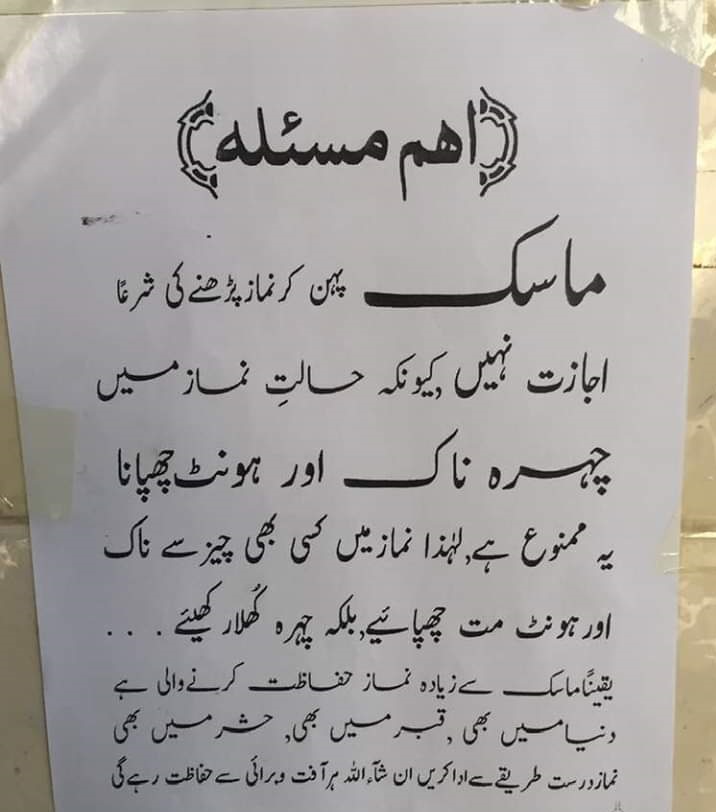 اہم مسئلہ
ماسک پہن کر نماز پڑھنے کی شرعًا
اجازت نہیں, کیونکہ حالتِ نماز میں
چہرہ ناک اور ہونٹ چھپانا
یہ ممنوع ہے, لہٰذا نماز میں کسی بھی چیز سے ناک
اور ہونٹ مت چھپائیے, بلکہ چہرہ کُھلا رکھیئے . . .
یقینًا ماسک سے زیادہ نماز حفاظت کرنے والی ہے
دنیا میں بھی, قبر میں بھی, حشر میں بھی
نماز درست طریقے سے ادا کریں ان شآء اللہ ہر آفت و برائی سے حفاظت رہے گی